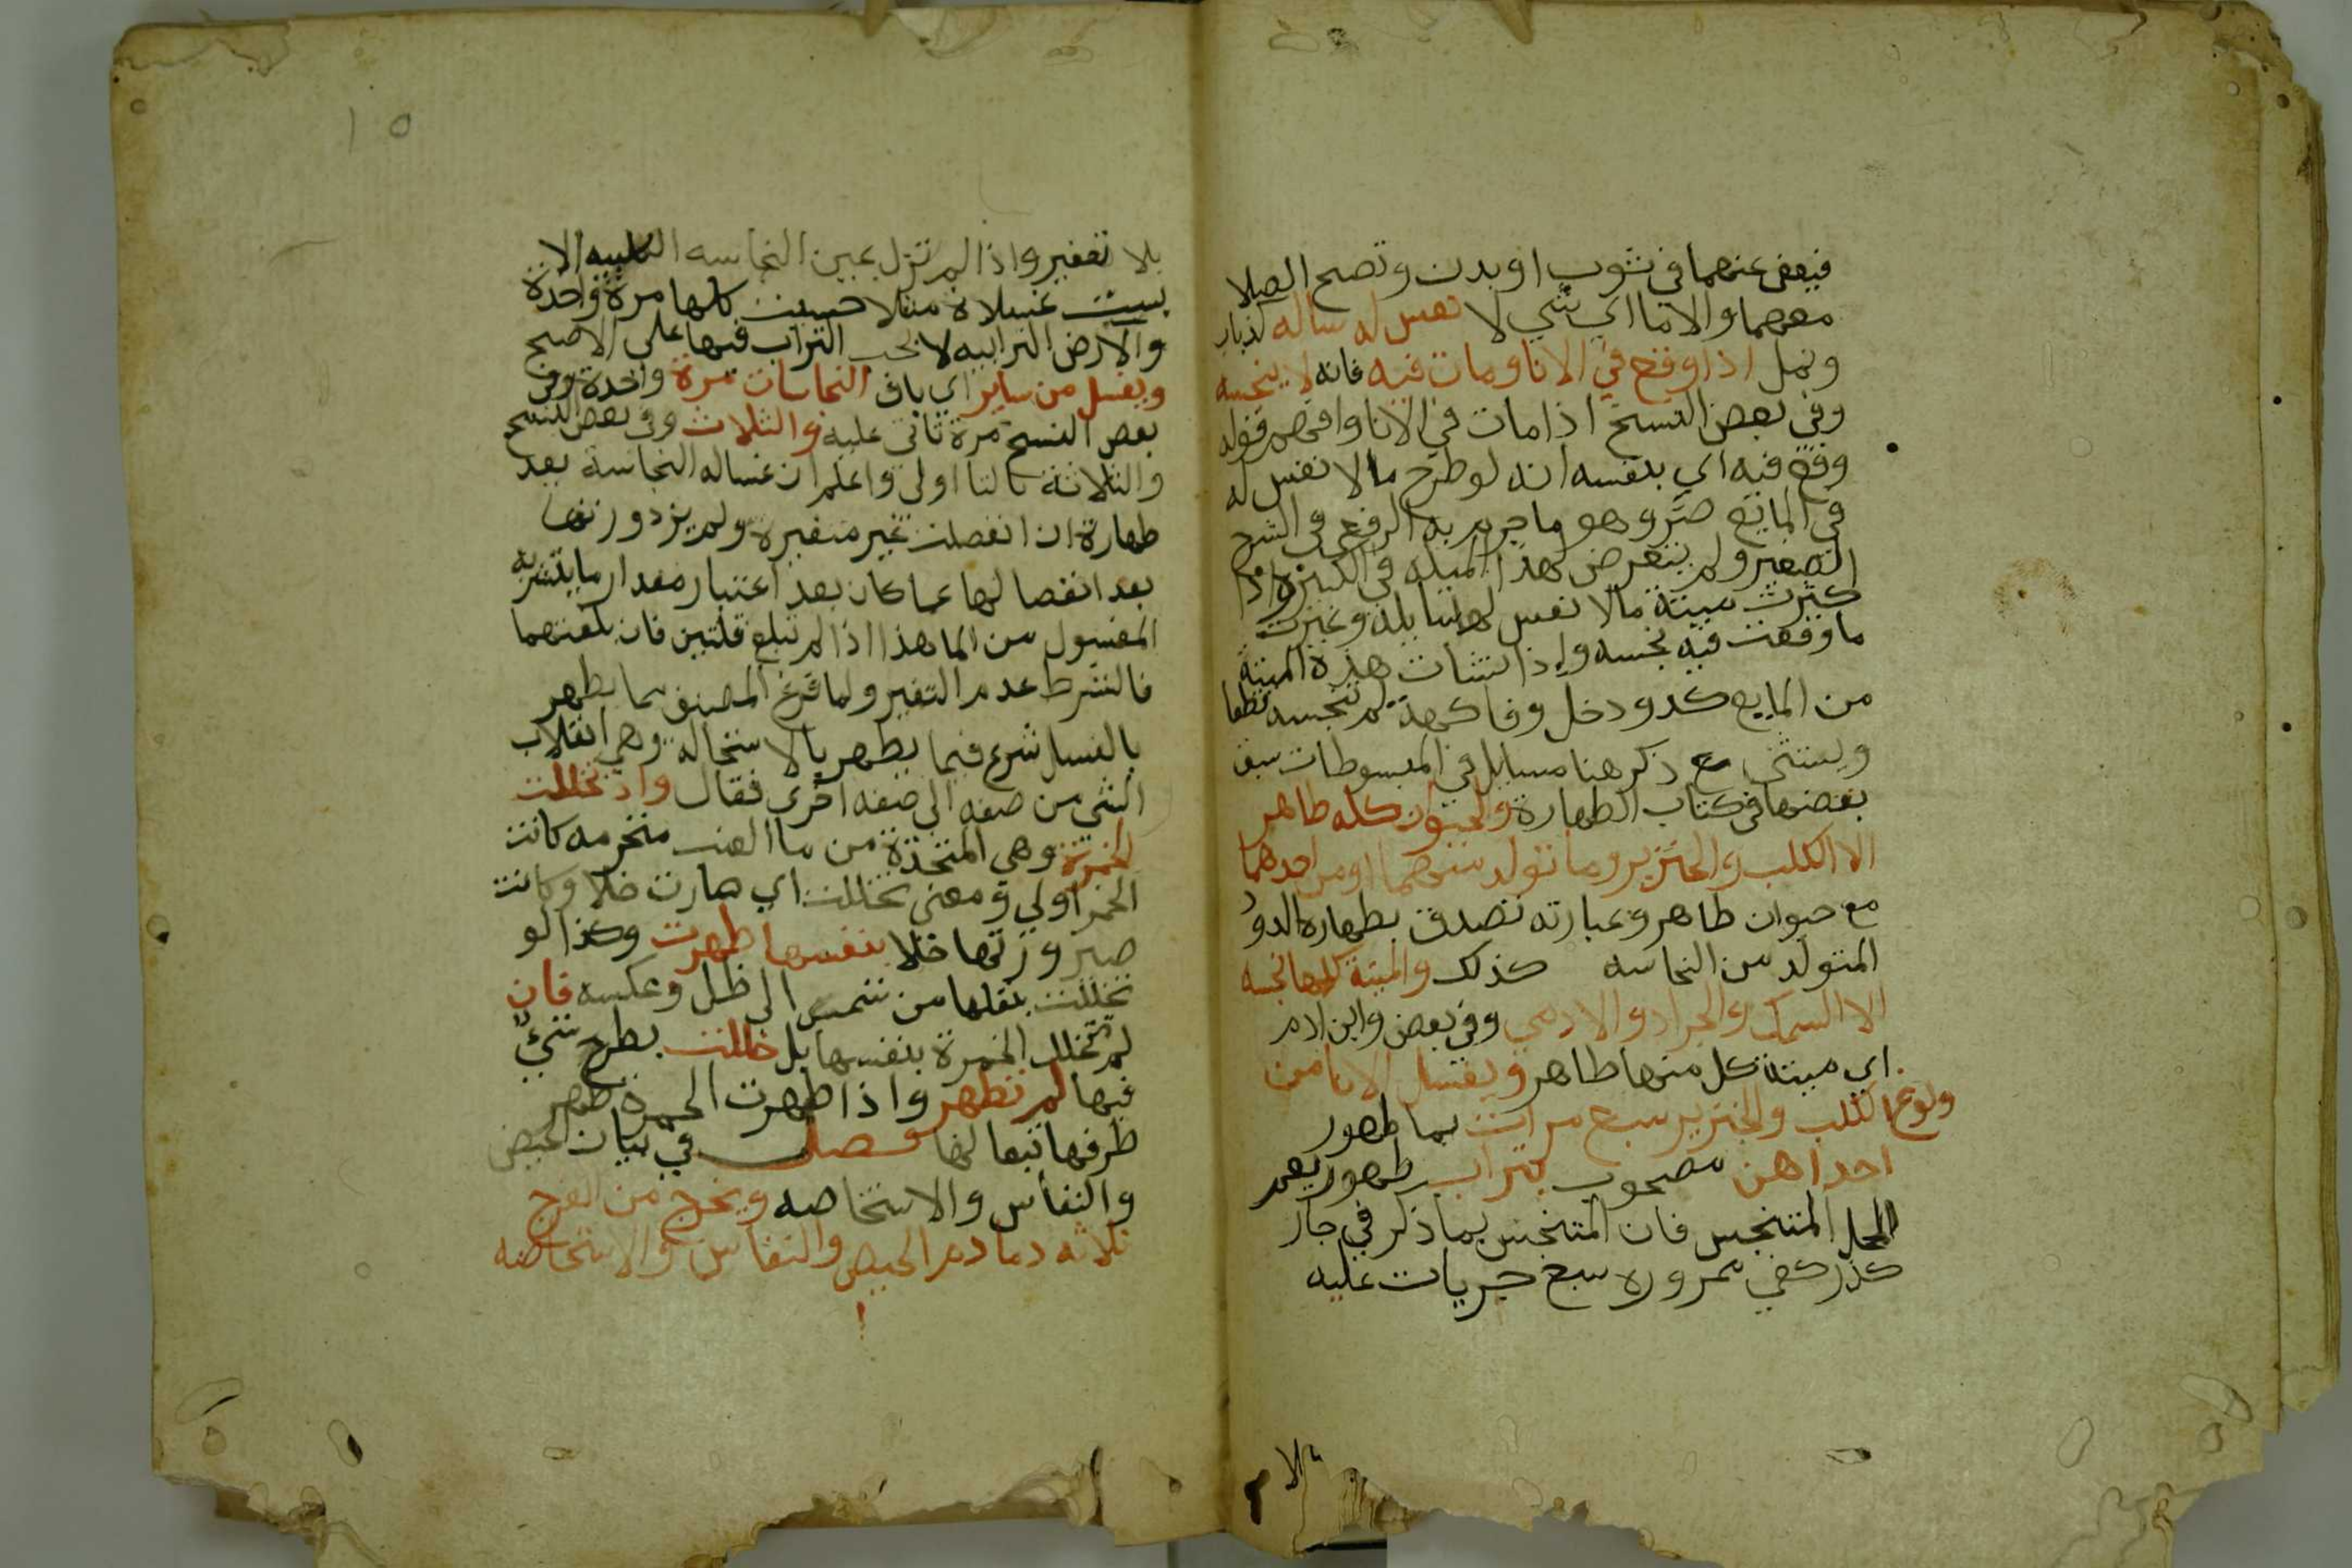 فيعفى عنهما في ثوب او بدن وتصح الصلا
معهما والا ما اي شي لا نفس له سائله كذباب
ونمل اذا وقع في الانا ومات فيه فانه لا ينجسه
وفي بعض النسخ اذا مات في الانا وافهم قوله
وقع فيه اي بنفسه انه لو طرح ما لا نفس له
في المايع ضر وهو ما جزم به الرفعي في الشرح
الصغير ولم يتعرض لهذه المسله في الكبير واذا
كثرت ميتة ما لا نفس لها سايله وغيرت
ما وقعت فيه نجسه واذا نشات هذه الميتة
من المايع كدود خل وفاكهة لم تنجسه قطعا
ويستثنى مع ذكر هنا مسايل في المبسوطات سبق
بعضها في كتاب الطهارة والحيوان كله طاهر
الا الكلب والخنزير وما تولد منهما او من احدهما
مع حيوان طاهر وعبارته تصدق بطهاره الدود
المتولد من النجاسه كذلك والميتة كلها نجسه
الا السمك والجراد والادمي وفي بعض وابن ادم
اي ميتة كل منها طاهر ويغسل الانا من
ولوغ الكلب والخنزير سبع مرات بما طهور
احداهن مصحوب بتراب طهور يعم
المحل المتنجس فان المتنجس بما ذكر في جار
كدر كفى مروره سبع جريات عليه
بلا
١٥
بلا تعفير واذا لم تزل عين النجاسه الكلبيه الا
بست غسلاة مثلا حسبت كلها مرة واحدة
والارض الترابيه لا يجب التراب فيها على الاصح
ويغسل من ساير اي باقى النجاسات مرة واحدة وفي
بعض النسخ مرة تاتى عليه والثلاث وفي بعض النسخ
والثلاثة بالتا اولى واعلم ان غساله النجاسة بعد
طهارة ان انفصلت غير متغيرة ولم يزد وزنها
بعد انفصالها عما كان بعد اعتبار مقدار ما يتشربه
المغسول من الما هذا اذا لم تبلغ قلتين فان بلغتهما
فالشرط عدم التغير ولما فرغ المصنف مما يطهر
بالغسل شرع فيما يطهر بالاستحاله وهي انقلاب
الشي من صفه الى صفه اخرى فقال واذ تخللت
الخمرة وهي المتخذة من ما العنب متخرمه كانت
الخمر اولي ومعنى تخللت اي صارت خلا وكانت
صيرورتها خلا بنفسها طهرت وكذا لو
تخللت بنقلها من شمس الى ظل وعكسه فان
لم تخلل الخمرة بنفسها بل خللت بطرح شيٍ
فيها لم تطهر واذا طهرت الخمرة طهر
ظرفها تبعا لها فصل في بيان الحيض
والنفاس والاستحاضه ويخرج من الفرج
ثلاثه دما دم الحيض والنفاس والاستحاضه